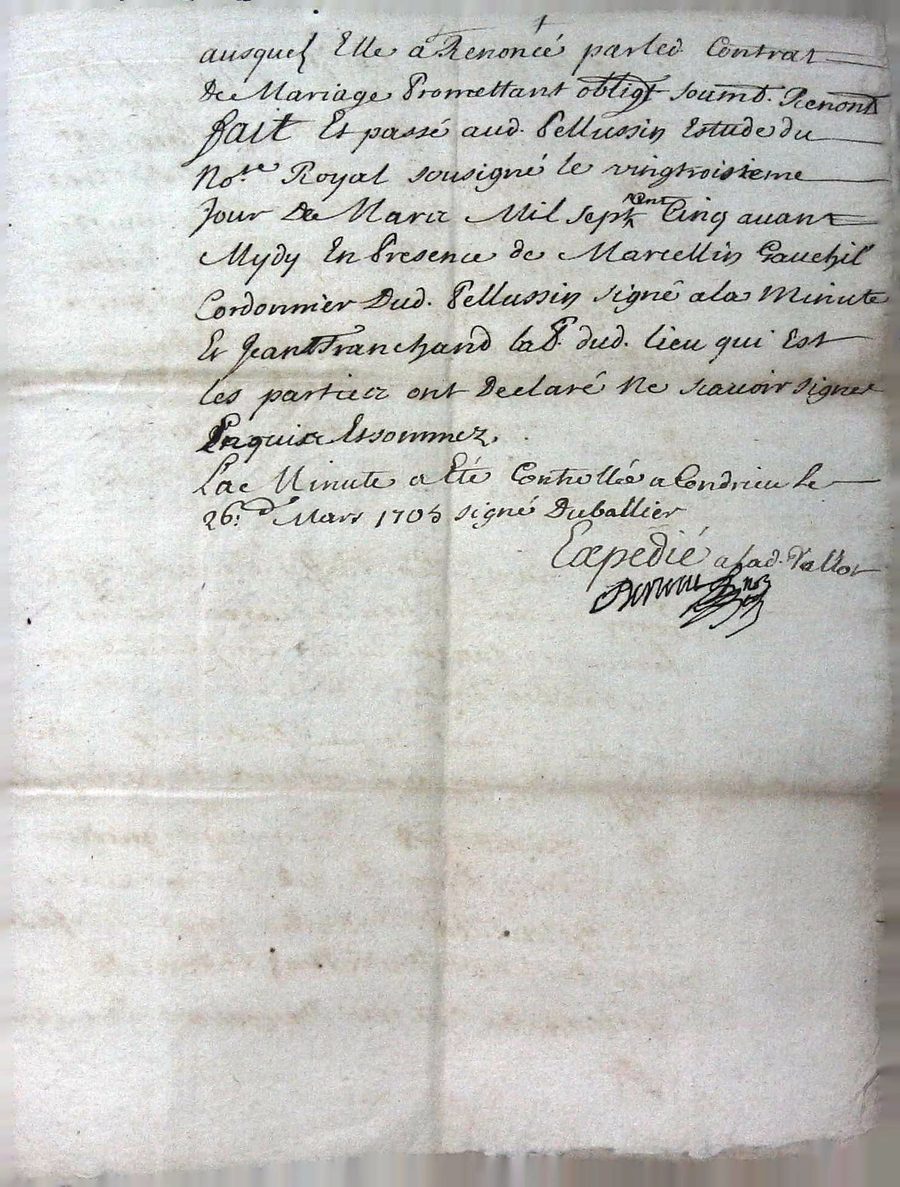 ausquel Elle a Renoncé parled. Contrat
De Mariage Promettant obligt soumt. Renont
fait Et passé aud. Pellussin Estude du
No.re Royal sousigné le vingtroisieme
Jour De Mars Mil sept cent Cinq auant
Mydy En Presence de Marcellin Gauchil
Cordonnier Dud. Pellussin signé ala Minute
Et Jean Franchand lab.r dud. lieu qui Est
les parties ont Declaré Ne scauoir signer
Enquis Et sommez.
Lae Minute a Eté Contrellée a Condrieu le
26.e d. Mars 1705 signé Duballier
Expedié a lad. Vallot